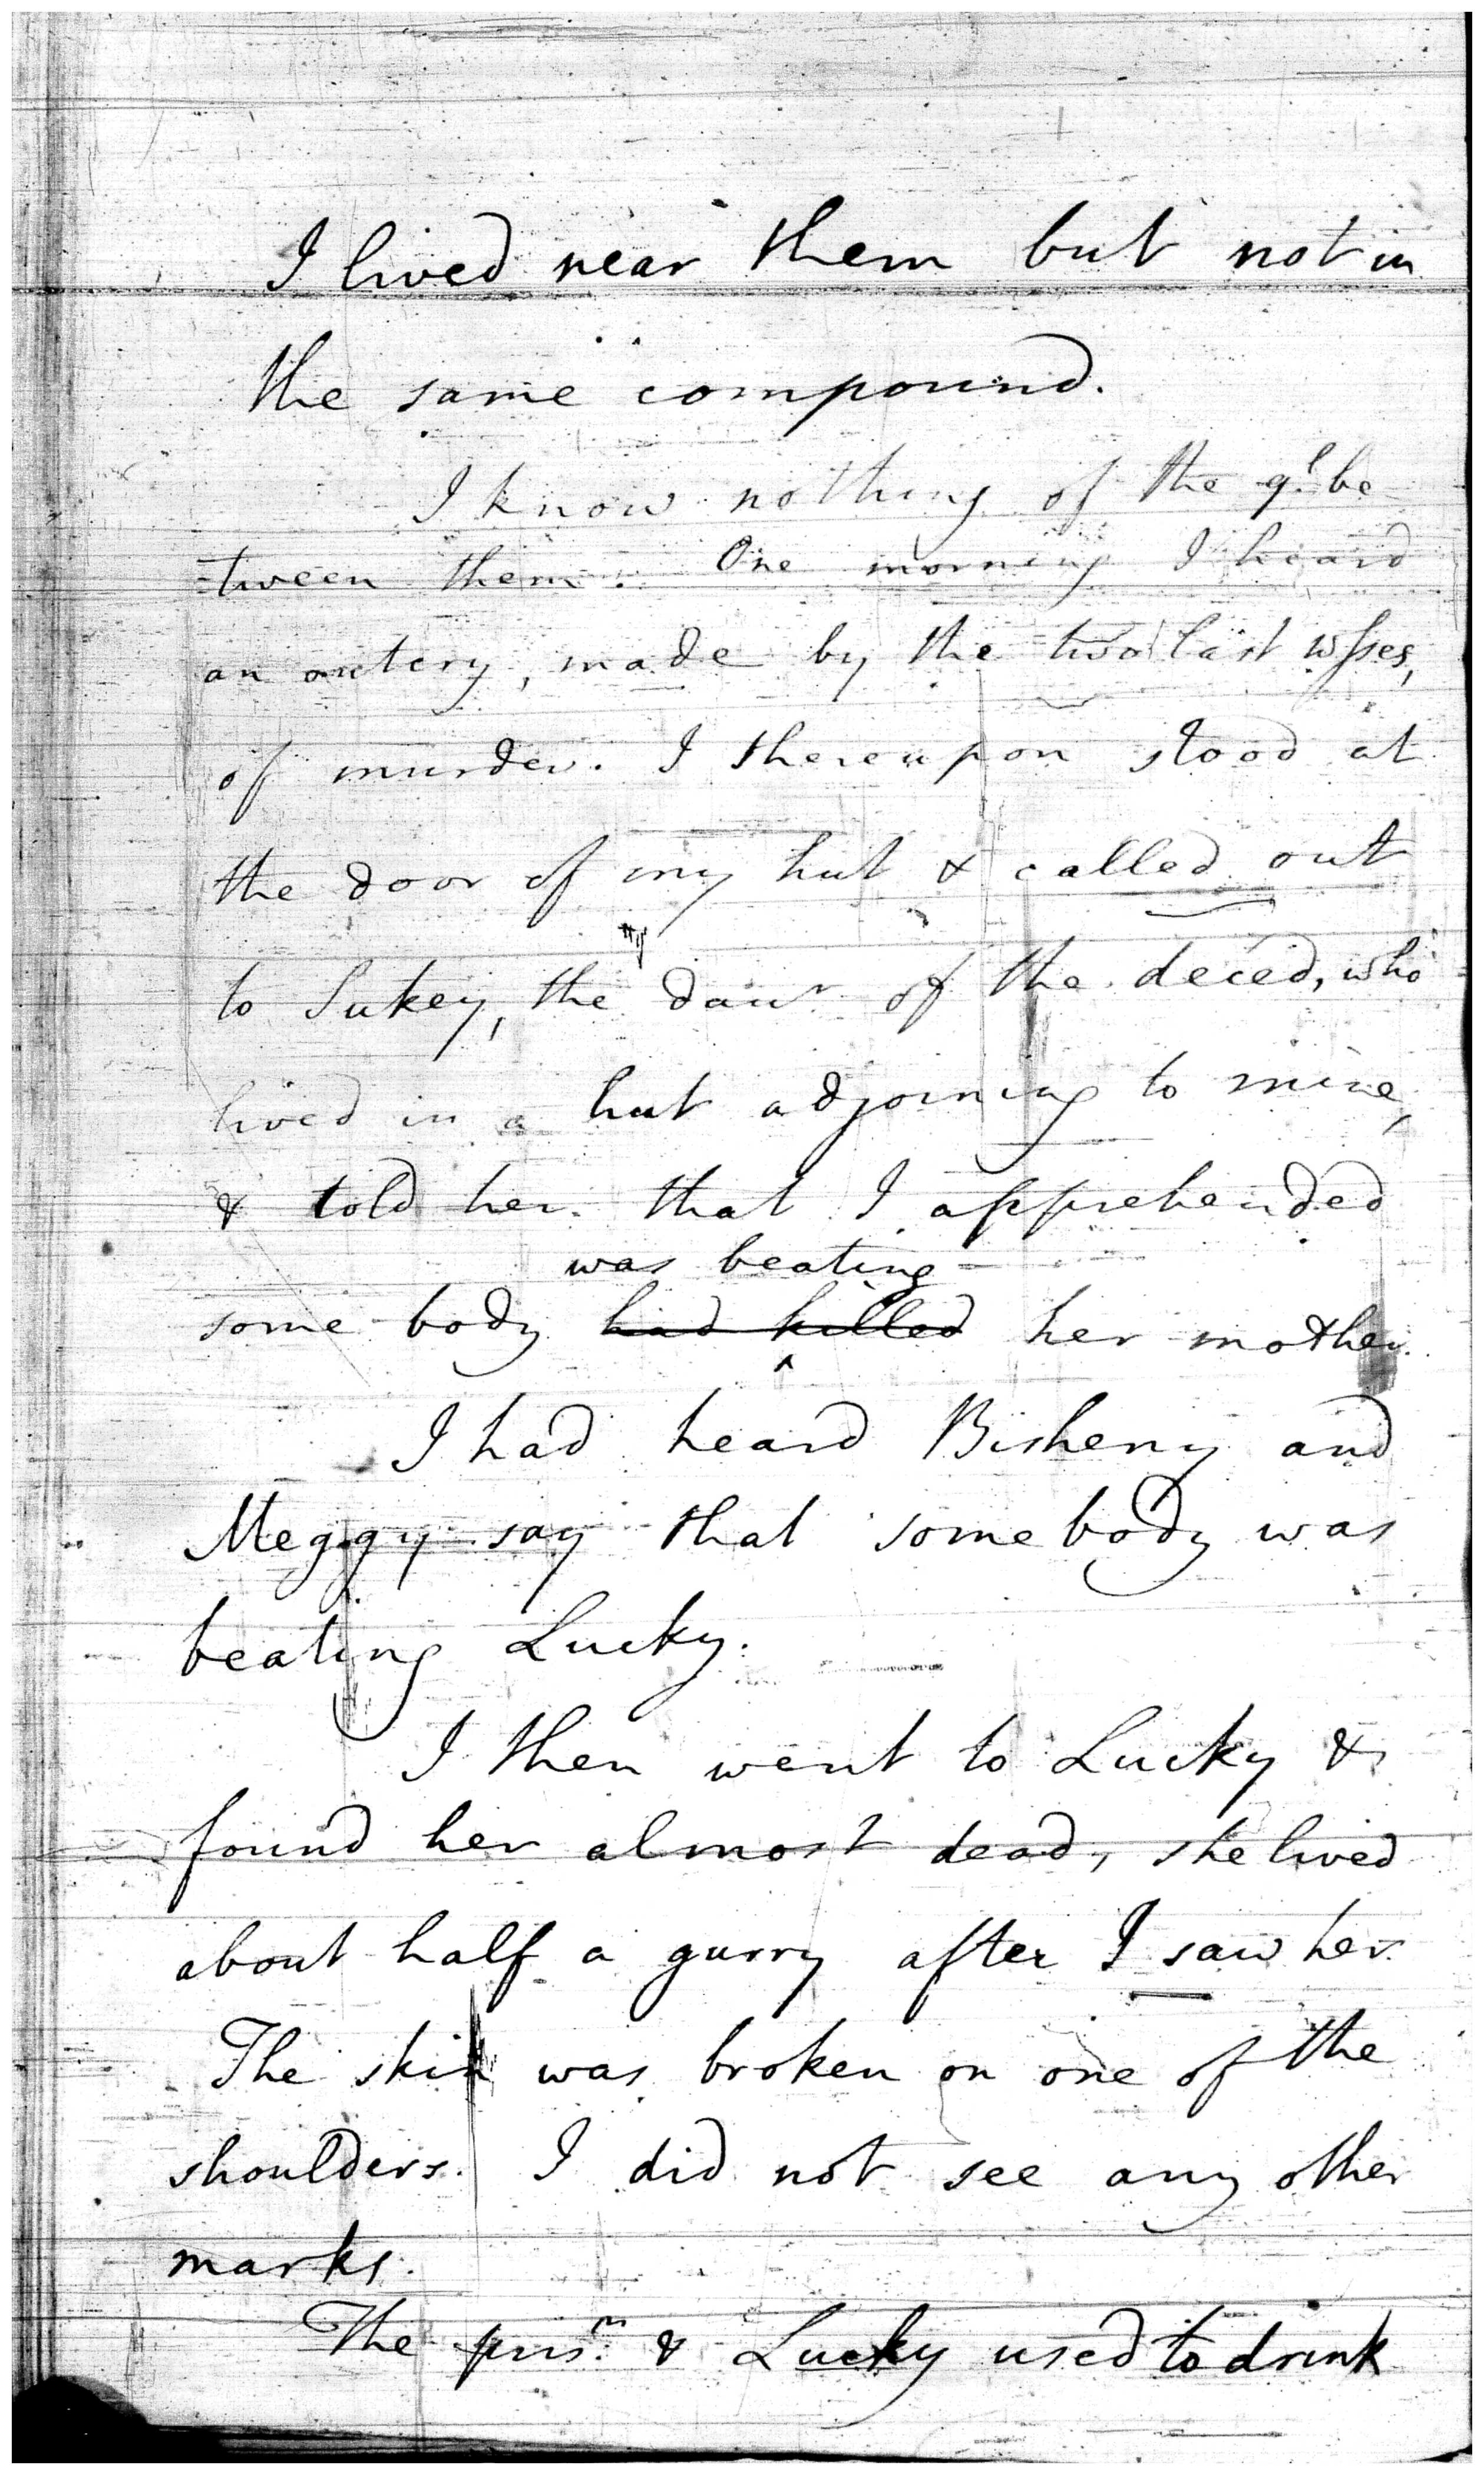 I lived near them but not in
the same compound.
I know nothing of the q.l be
-tween them. One morning I heard
an outcry, made by the two last wsses,
of murder. I thereupon stood at
the door of my hut & called out
to Sukey, the daur of the deced, who
lived in a hut adjoining to mine,
& told her that I apprehended
was beating
some body had killed her mother.
I had heard Bisheny and
Meggy say that somebody was
beating Lucky.
I then went to Lucky &
found her almost dead, she lived
about half a gurry after I saw her.
The skin was broken on one of the
shoulders. I did not see any other
marks.
The & Lucky used to drink